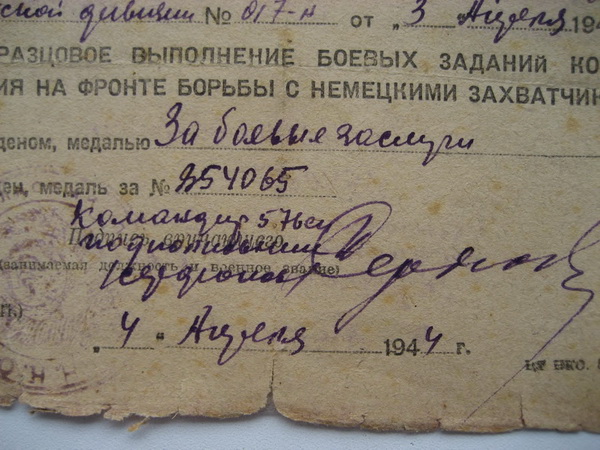 ской дивизии № 017-н от „3 Апреля 194
РАЗЦОВОЕ ВЫПОЛНЕНИЕ БОЕВЫХ ЗАДАНИЙ КО
ИЯ НА ФРОНТЕ БОРЬБЫ С НЕМЕЦКИМИ ЗАХВАТЧИ
деном, медалью За боевые заслуги
ден, медаль за № 854065
Командир 576
Подпись вручившего
(занимаемая должность и военное звание)
„4" Апреля 1944 г.